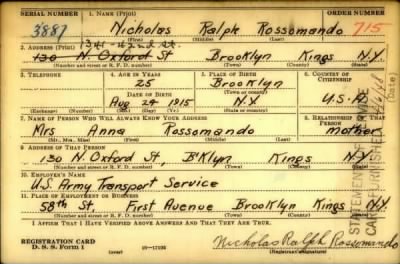 SERIAL NUMBER 1. NAME (Print) ORDER NUMBER
3887 Nicholas Ralph Rossomando 715
(First) (Middle) (Last)
2. ADDRESS (Print) 1341-42nd St.
130 N. Oxford St Brooklyn Kings N.Y.
(Number and street or R. F. D. number) (Town) (County) (State)
3. TELEPHONE 4. AGE IN YEARS 5. PLACE OF BIRTH 6. COUNTRY OF CITIZENSHIP
25 Brooklyn
DATE OF BIRTH (Town or county)
Aug 24 1915 N.Y. U.S.A.
(Exchange) (Number) (Mo.) (Day) (Yr.) (State or country)
7. NAME OF PERSON WHO WILL ALWAYS KNOW YOUR ADDRESS 8. RELATIONSHIP OF THAT PERSON
Mrs Anna Rossomando mother
(Mr., Mrs., Miss) (First) (Middle) (Last)
9. ADDRESS OF THAT PERSON
130 N. Oxford St, B'Klyn Kings N.Y.
(Number and street or R. F. D. number) (Town) (County) (State)
10. EMPLOYER'S NAME
U.S. Army Transport Service
11. PLACE OF EMPLOYMENT OR BUSINESS
58th St. First Avenue Brooklyn Kings N.Y.
(Number and street or R. F. D. number) (Town) (County) (State)
I AFFIRM THAT I HAVE VERIFIED ABOVE ANSWERS AND THAT THEY ARE TRUE.
REGISTRATION CARD
D. S. S. Form 1 Nicholas Ralph Rossomando
(Registrant's signature)